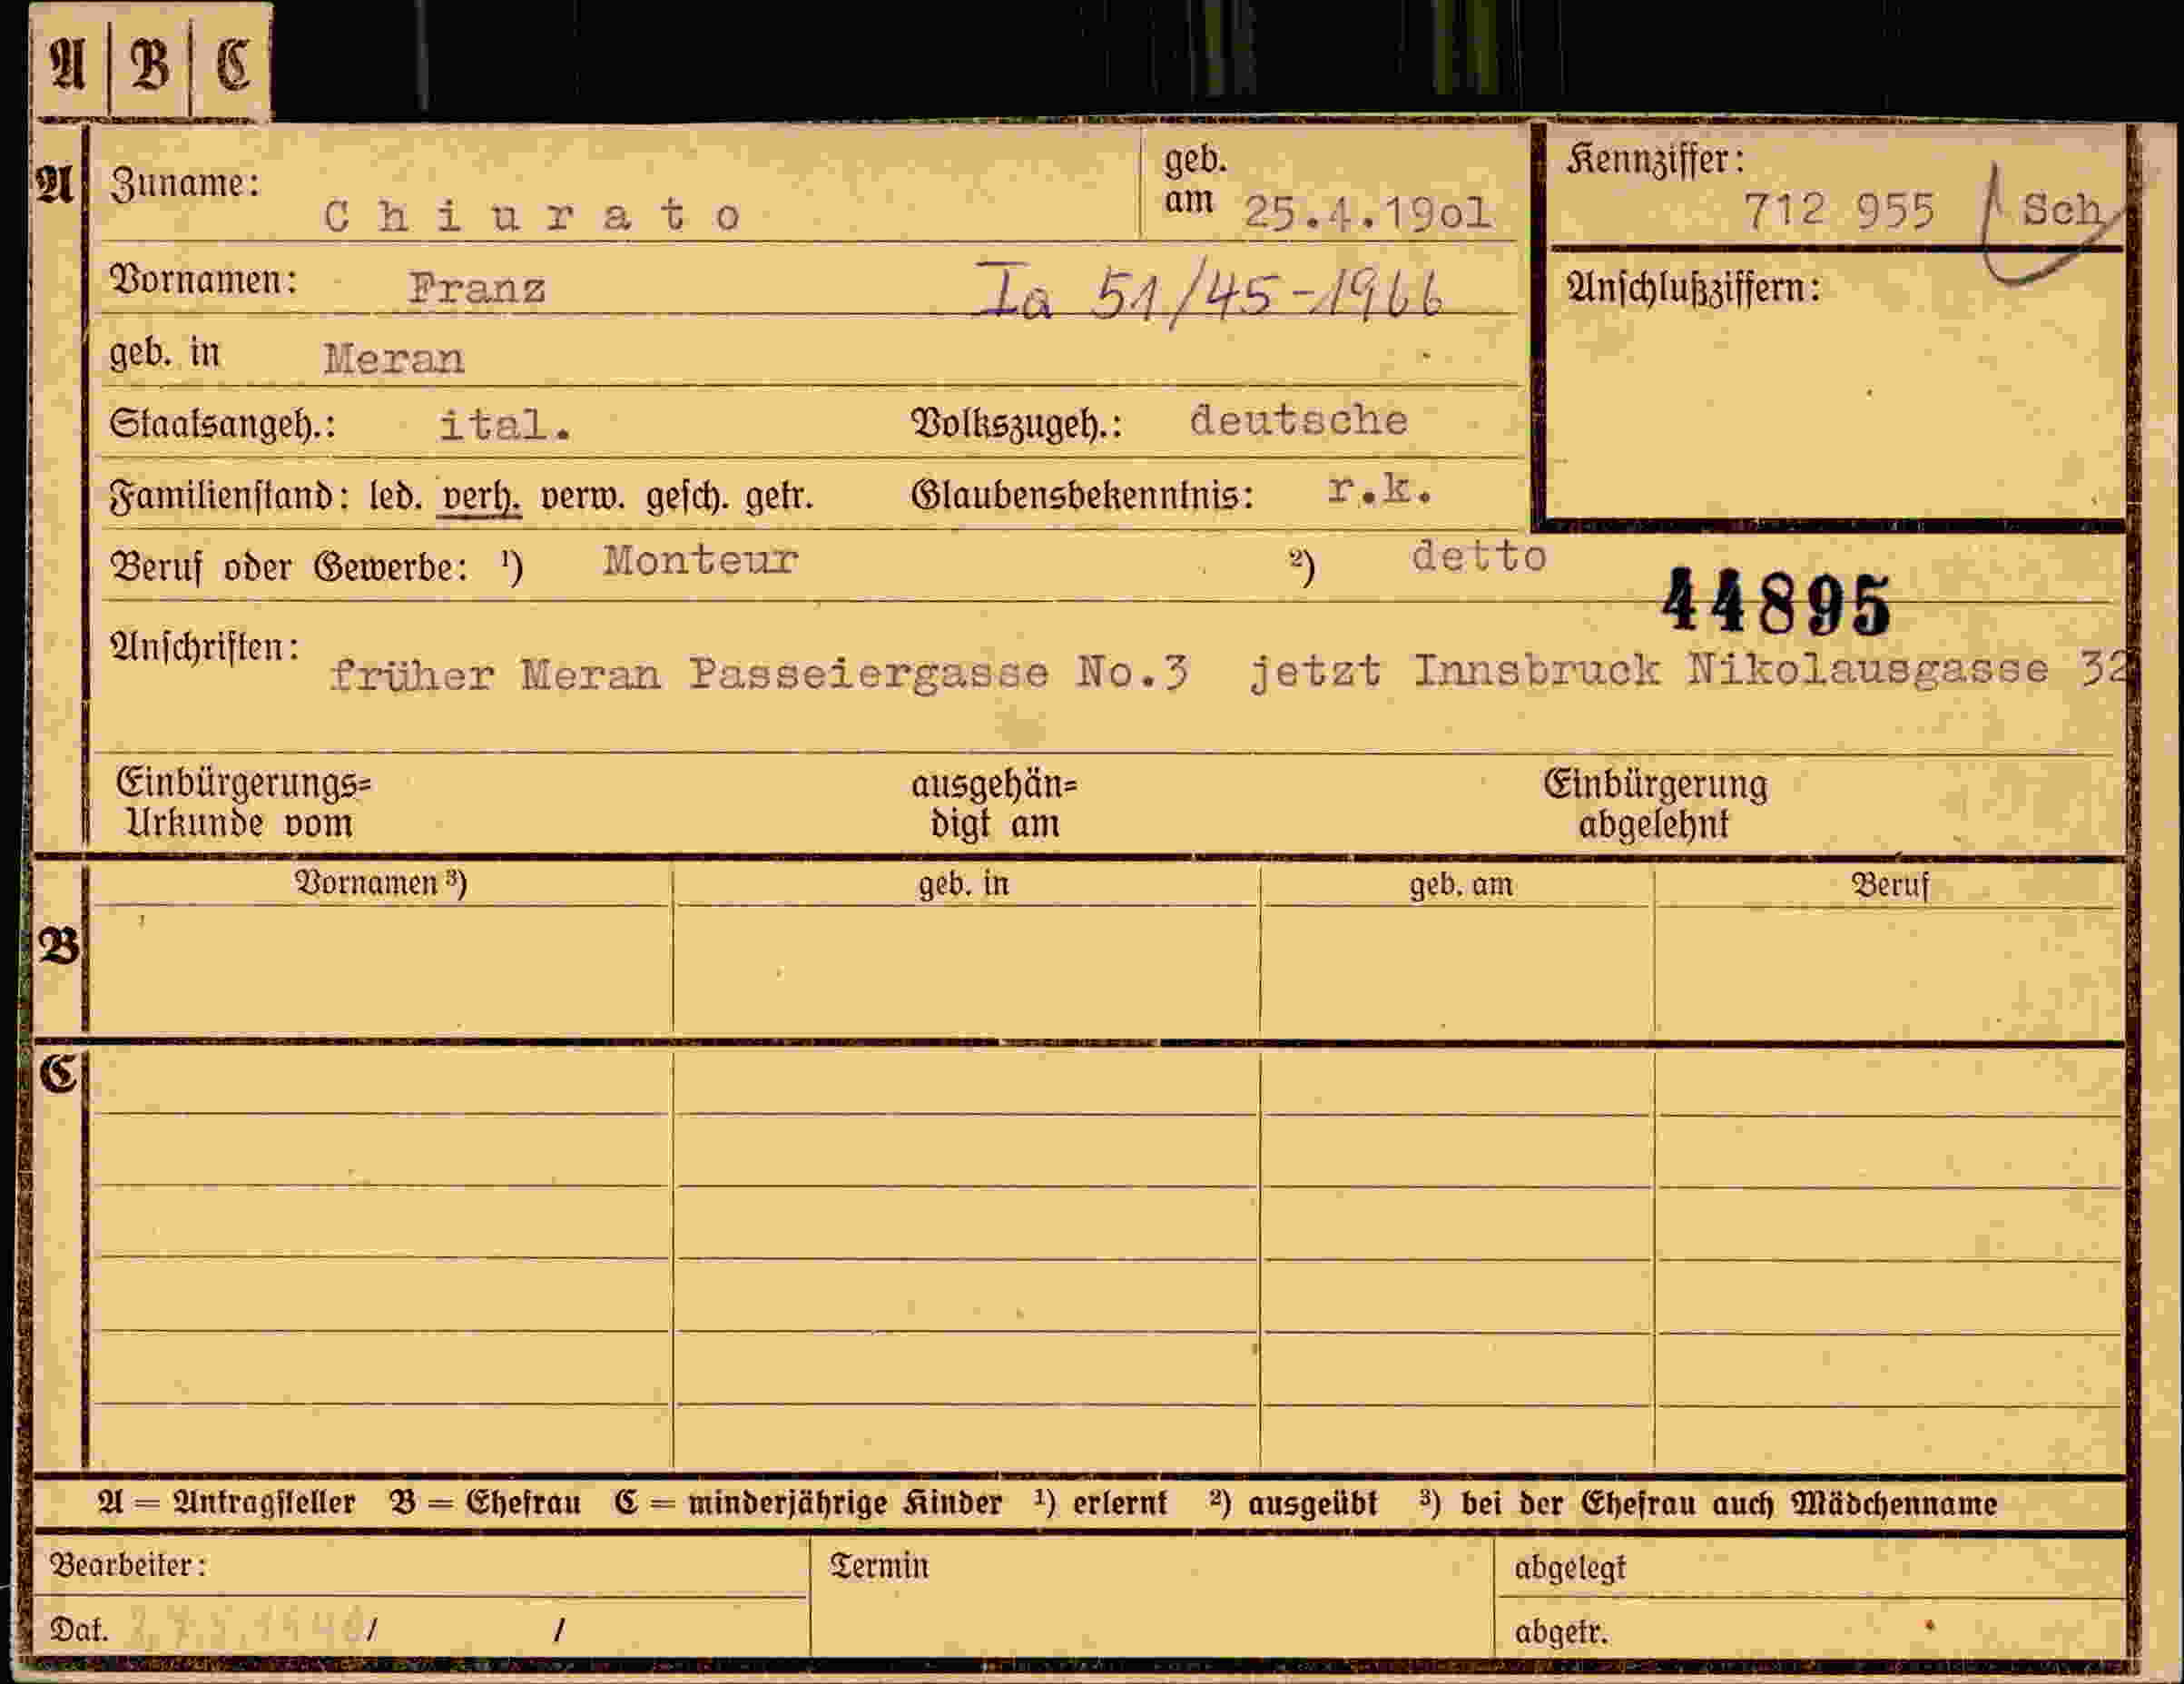 A | B | C
A Zuname: Chiurato geb. am 25.4.19o1 Kennziffer: 712 955 Sch
Vornamen: Franz Ia 51/45-1966 Anschlußziffern:
geb. in Meran
Staatsangeh.: ital. Volkszugeh.: deutsche
Familienstand: led. verh. verw. gesch. getr. Glaubensbekenntnis: r.k.
Beruf oder Gewerbe: ¹) Monteur ²) detto
44895
Anschriften: früher Meran Passeiergasse No.3 jetzt Innsbruck Nikolausgasse 32
Einbürgerungs= Urkunde vom ausgehän= digt am Einbürgerung abgelehnt
B Vornamen ³) geb. in geb. am Beruf
C
A = Antragsteller B = Ehefrau C = minderjährige Kinder ¹) erlernt ²) ausgeübt ³) bei der Ehefrau auch Mädchenname
Bearbeiter: Termin abgelegt
Dat. / / abgetr.